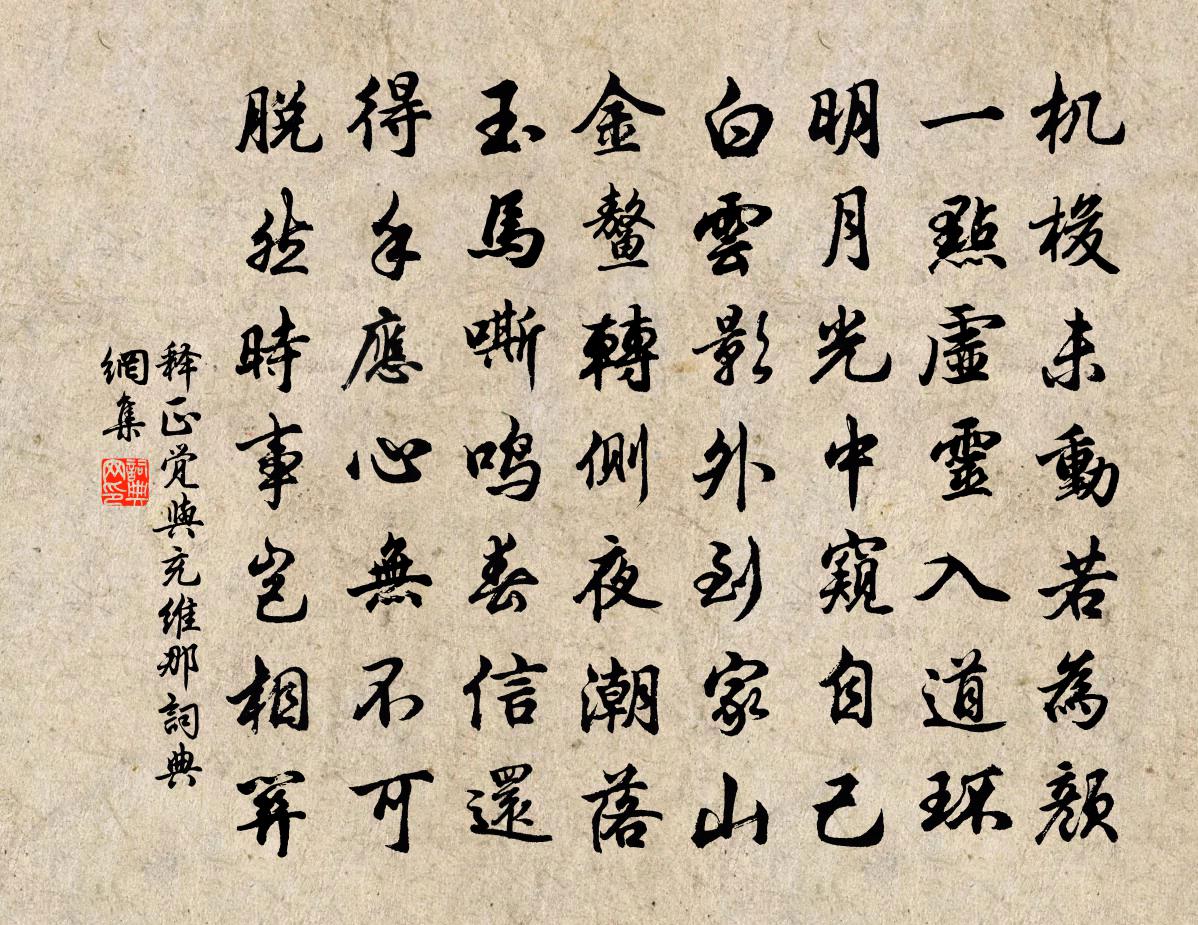 机梭未動若為顏
一點虛靈入道环
明月光中窺自己
白雲影外到家山
金鳌轉側夜潮落
玉馬嘶鸣春信還
得手應心無不可
脫然時事豈相関
释正觉與充維那詞典
網集
詞典网印